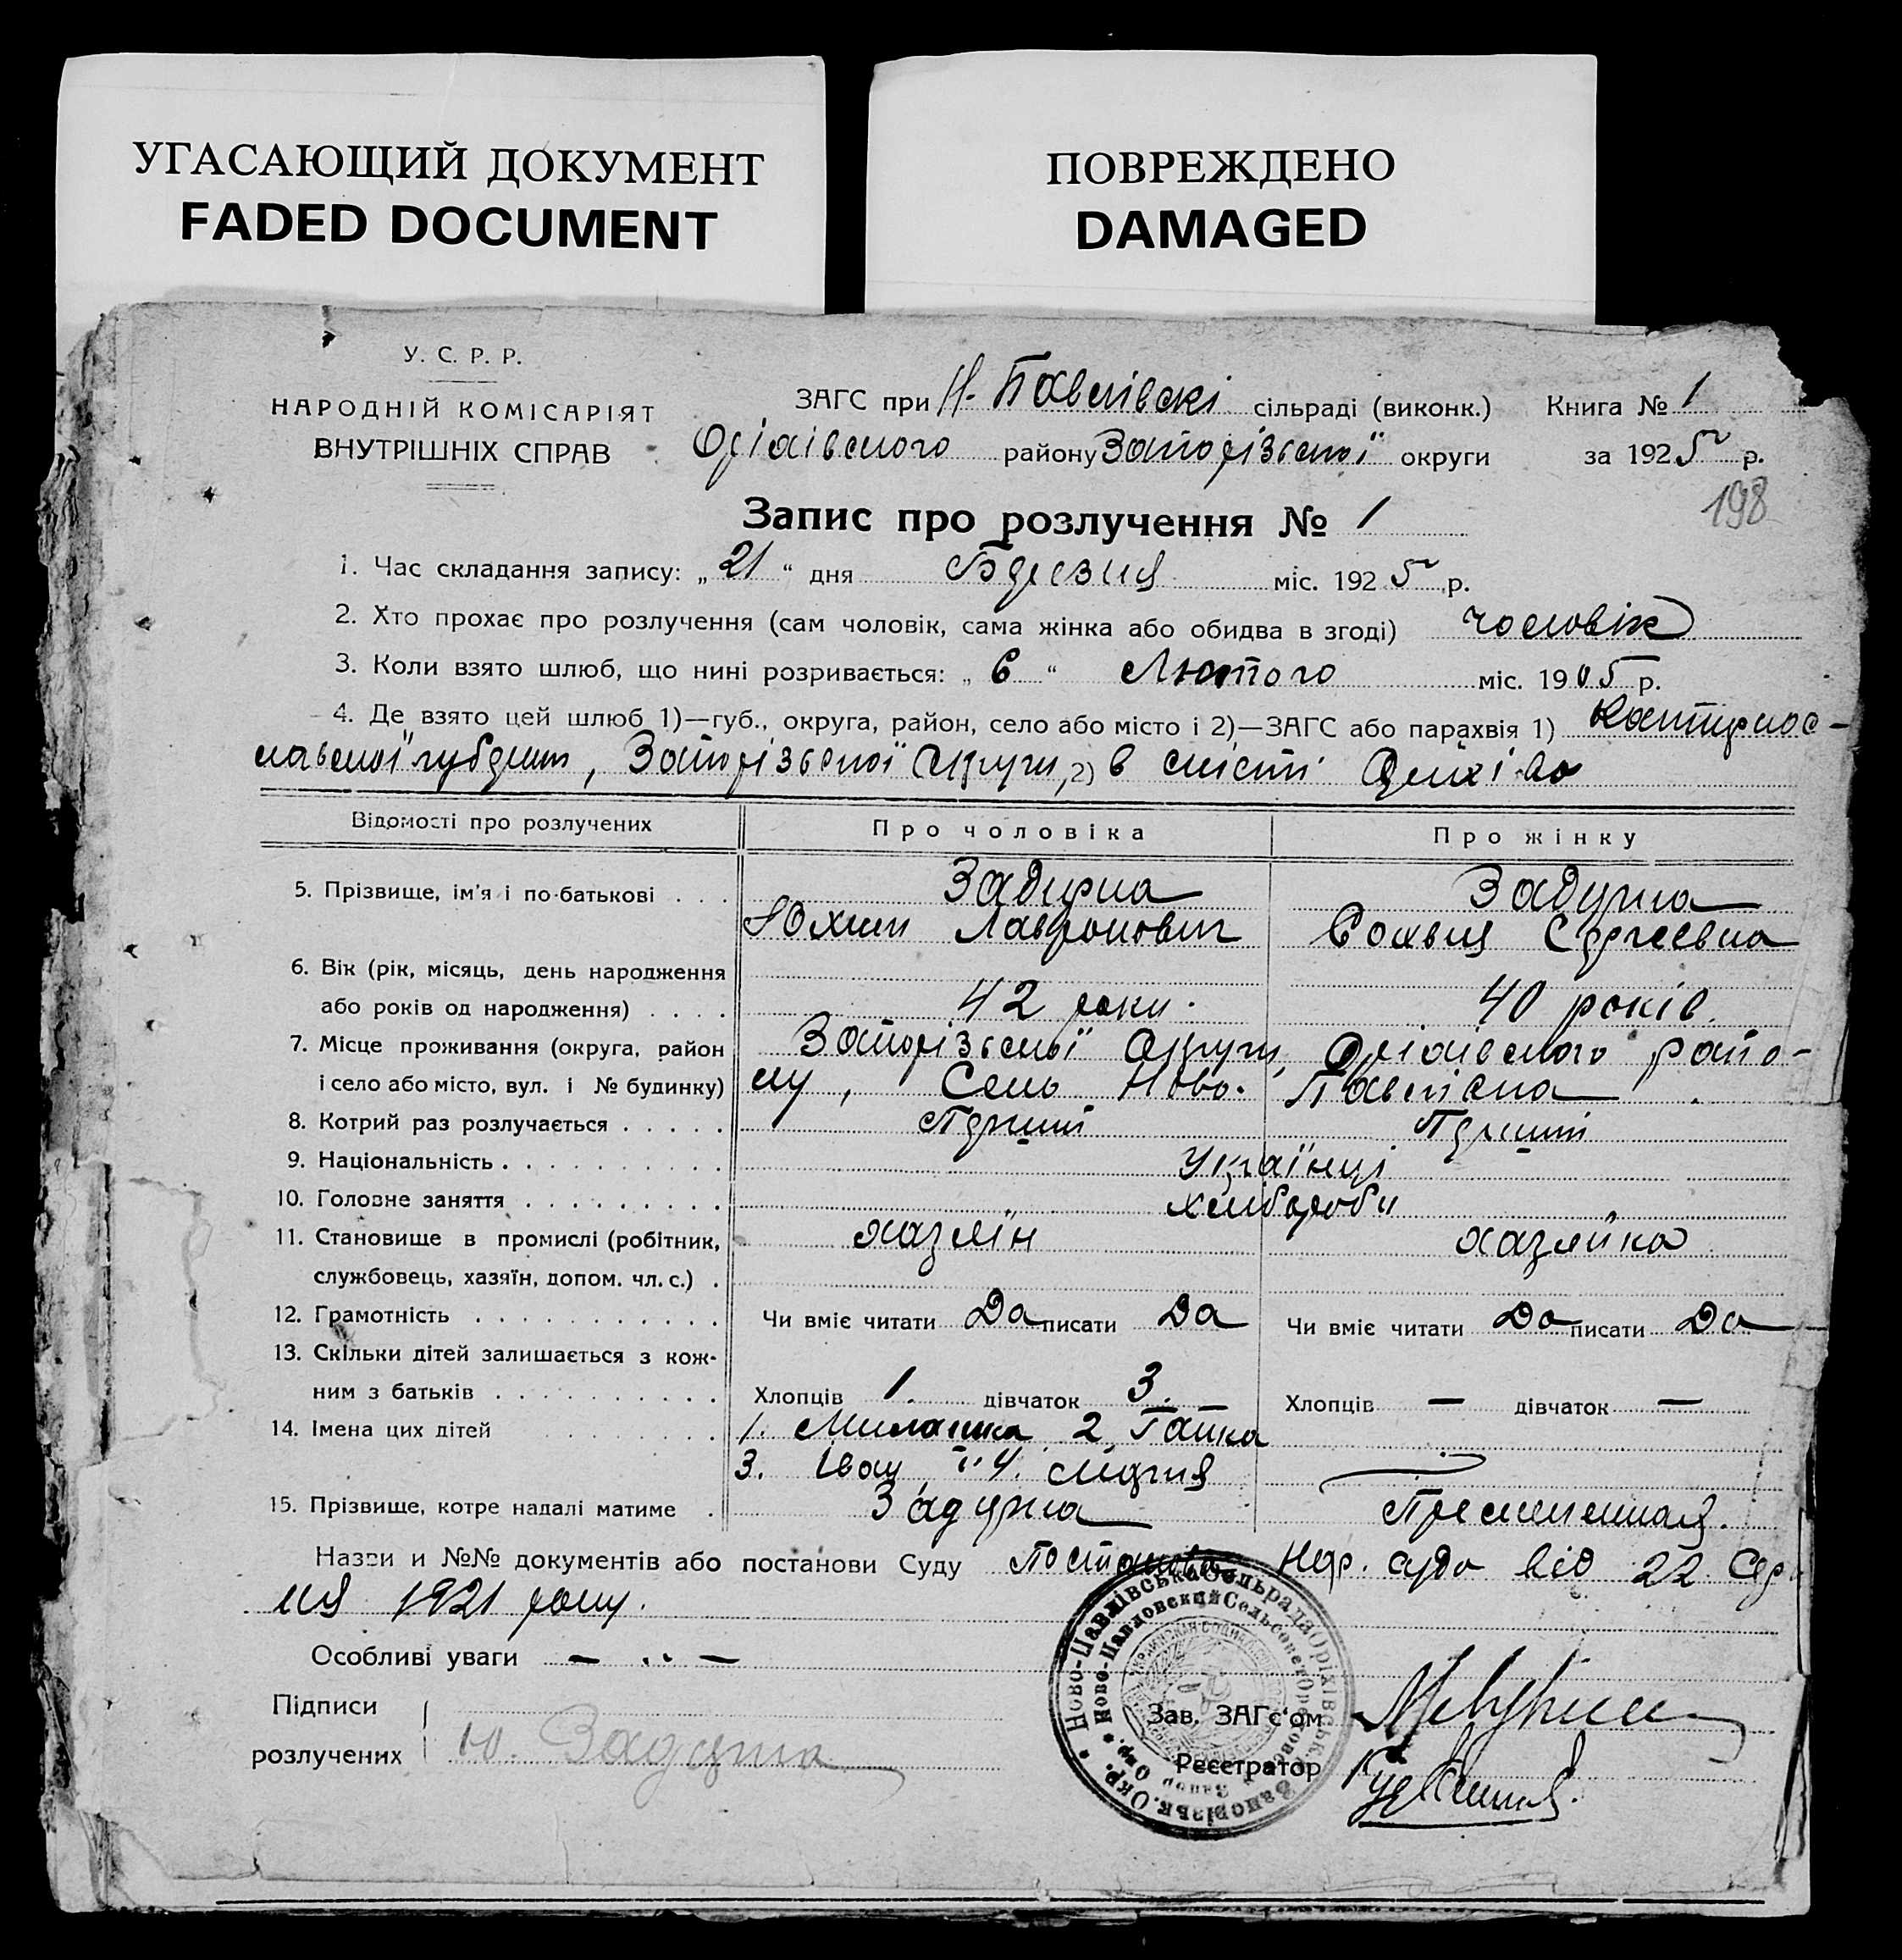 УГАСАЮЩИЙ ДОКУМЕНТ
FADED DOCUMENT
ПОВРЕЖДЕНО
DAMAGED
У. С. Р. Р.
НАРОДНІЙ КОМІСАРІЯТ
ВНУТРІШНІХ СПРАВ
ЗАГС при Н-Павлівскі сільраді (виконк.) Книга № 1
Оріхівського району Запорізської округи за 1925 р.
198
Запис про розлучення № 1
1. Час складання запису: „ 21 “ дня Березня міс. 1925 р.
2. Хто прохає про розлучення (сам чоловік, сама жінка або обидва в згоді) чоловік
3. Коли взято шлюб, що нині розривається: „ 6 “ Лютого міс. 1905 р.
4. Де взято цей шлюб 1)—губ., округа, район, село або місто і 2)—ЗАГС або парахвія 1)
губерни, Запорізської Округи, 2) в місті
Відомості про розлучених Про чоловіка Про жінку
5. Прізвище, ім'я і по-батькові . . . Задирка Задирка
Юхим Лавронович Софья Сергеевна
6. Вік (рік, місяць, день народження
або років од народження) . . . . 42 роки. 40 років.
7. Місце проживання (округа, район Запорізської Округи, Оріхівського райо-
і село або місто, вул. і № будинку) ну, Село Ново-Павлівка
8. Котрий раз розлучається . . . . . Перший Перший
9. Національність . . . . . . . . . . Українці
10. Головне заняття . . . . . . . . . хлибороби
11. Становище в промислі (робітник, хазяїн хазяйка
службовець, хазяїн, допом. чл. с.) .
12. Грамотність . . . . . . . . . . . Чи вміє читати Да писати Да Чи вміє читати Да писати Да
13. Скільки дітей залишається з кож-
ним з батьків . . . . . . . . . . Хлопців 1. дівчаток 3. Хлопців — дівчаток —
14. Імена цих дітей . . . . . . . . 1. 2.
3. Іван і 4.
15. Прізвище, котре надалі матиме . Задирка
Назви и №№ документів або постанови Суду Постанова Нар. суда від 22 Сер-
ня 1921 року.
Особливі уваги — .. —
Підписи
розлучених Ю. Задирка
Зав. ЗАГс'ом
Реєстратор
Ново-Павлівська Сельрада Оріхівськ. Запорізьк. Окр.
Ново-Павловский Сельсовет Ореховск. Запор. Окр.